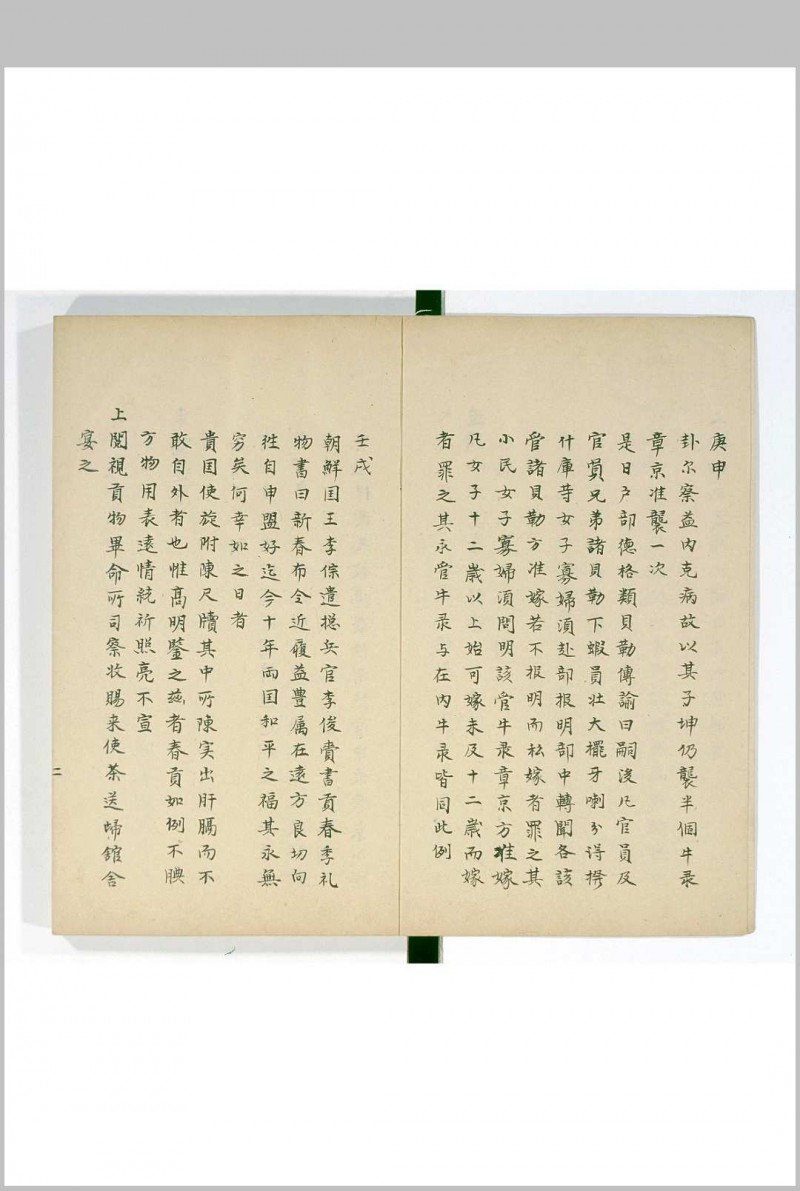 庚申
卦尔察益内克病故以其子坤仍襲半個牛录
章京准襲一次
是日户部德格類貝勒傳諭曰嗣後凡官員及
官員兄弟諸貝勒下蝦員壮大擺牙喇分得撥
什庫等女子寡婦湏赴部报明部中轉聞各該
管諸貝勒方准嫁若不报明而私嫁者罪之其
小民女子寡婦湏問明該管牛录章京方准嫁
凡女子十二歲以上始可嫁未及十二歲而嫁
者罪之其永管牛录与在内牛录皆同此例
壬戌
朝鮮囯王李倧遣揔兵官李俊賚書貢春季礼
物書曰新春布令近履益豊属在遠方良切向
徃自申盟好迄今十年両囯和平之福其永無
穷矣何幸如之日者
貴囯使旋附陳尺牘其中所陳实出肝膈而不
敢自外者也惟髙明鑒之兹者春貢如例不腆
方物用表遠情統祈照亮不宣
上閱視貢物畢命所司察收賜来使茶送歸舘舍
宴之
二